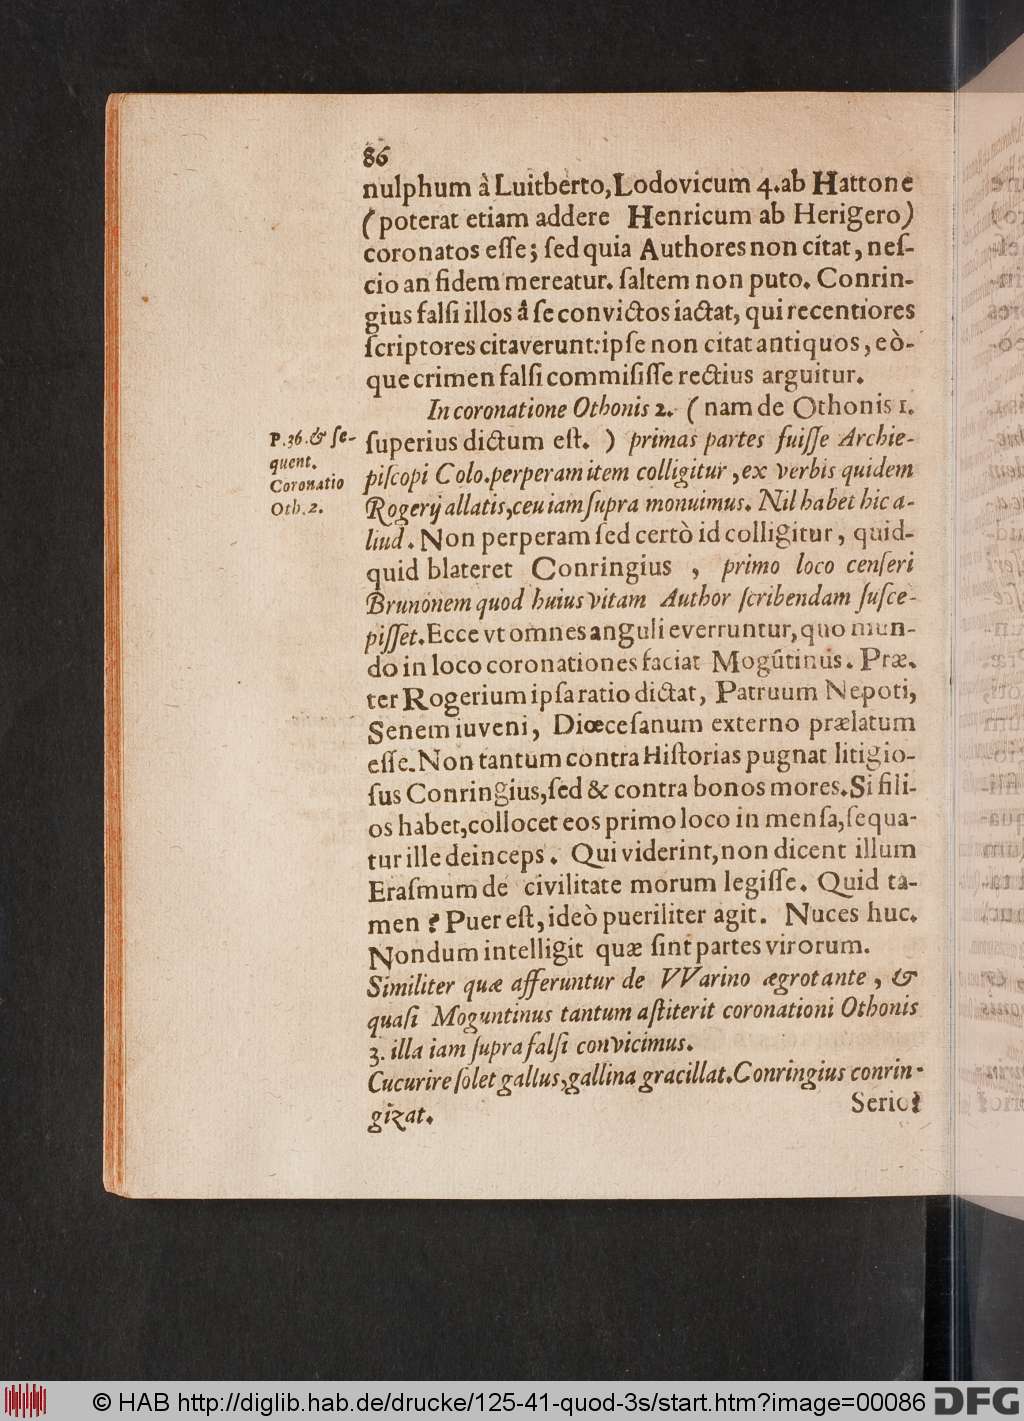 86
nulphum à Luitberto, Lodovicum 4. ab Hattone
(poterat etiam addere Henricum ab Herigero)
coronatos eſſe; ſed quia Authores non citat, neſ-
cio an fidem mereatur. ſaltem non puto. Conrin-
gius falſi illos â ſe convictos iactat, qui recentiores
ſcriptores citaverunt: ipſe non citat antiquos, eò-
que crimen falſi commiſiſſe rectius arguitur.
In coronatione Othonis 2. (nam de Othonis 1.
P. 36. & ſe-
quent.
Coronatio
Oth. 2.
ſuperius dictum eſt.) primas partes fuiſſe Archie-
piſcopi Colo. perperam item colligitur, ex verbis quidem
Rogerij allatis, ceu iam ſupra monuimus. Nil habet hic a-
liud. Non perperam ſed certò id colligitur, quid-
quid blateret Conringius, primo loco cenſeri
Brunonem quod huius vitam Author ſcribendam ſuſce-
piſſet. Ecce vt omnes anguli everruntur, quo mun-
do in loco coronationes faciat Mogũtinus. Præ-
ter Rogerium ipſa ratio dictat, Patruum Nepoti,
Senem iuveni, Diœceſanum externo prælatum
eſſe. Non tantum contra Hiſtorias pugnat litigio-
ſus Conringius, ſed & contra bonos mores. Si fili-
os habet, collocet eos primo loco in menſa, ſequa-
tur ille deinceps. Qui viderint, non dicent illum
Eraſmum de civilitate morum legiſſe. Quid ta-
men? Puer eſt, ideò pueriliter agit. Nuces huc.
Nondum intelligit quæ ſint partes virorum.
Similiter quæ afferuntur de VVarino ægrotante, &
quaſi Moguntinus tantum aſtiterit coronationi Othonis
3. illa iam ſupra falſi convicimus.
Cucurire ſolet gallus, gallina gracillat. Conringius conrin-
gizat.
Serio?
© HAB http://diglib.hab.de/drucke/125-41-quod-3s/start.htm?image=00086
DFG